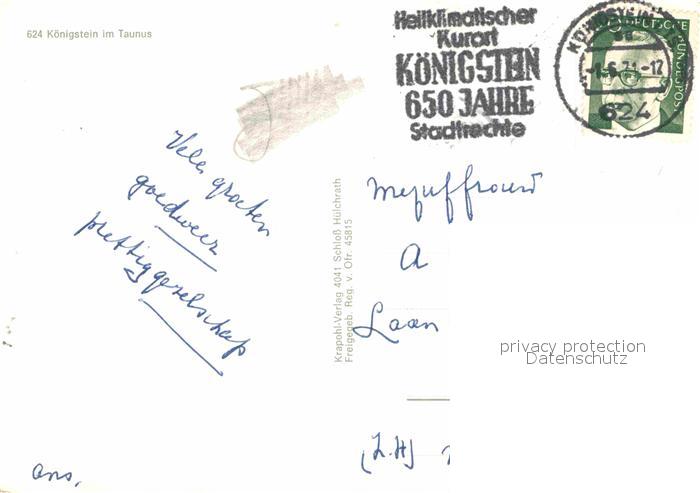 624 Königstein im Taunus
Heilklimatischer
Kurort
KÖNIGSTEIN
650 JAHRE
Stadtrechte
KÖNIGSTEIN
-1.6.71-17
624
DEUTSCHE BUNDESPOST
Vele groeten
goedweer
prettig gezelschap
Ans.
Krapohl-Verlag 4041 Schloß Hülchrath
Freigegeb. Reg. v. Dfr. 45815
Mejuffrouw
A
Laan
(Z.H)
privacy protection
Datenschutz